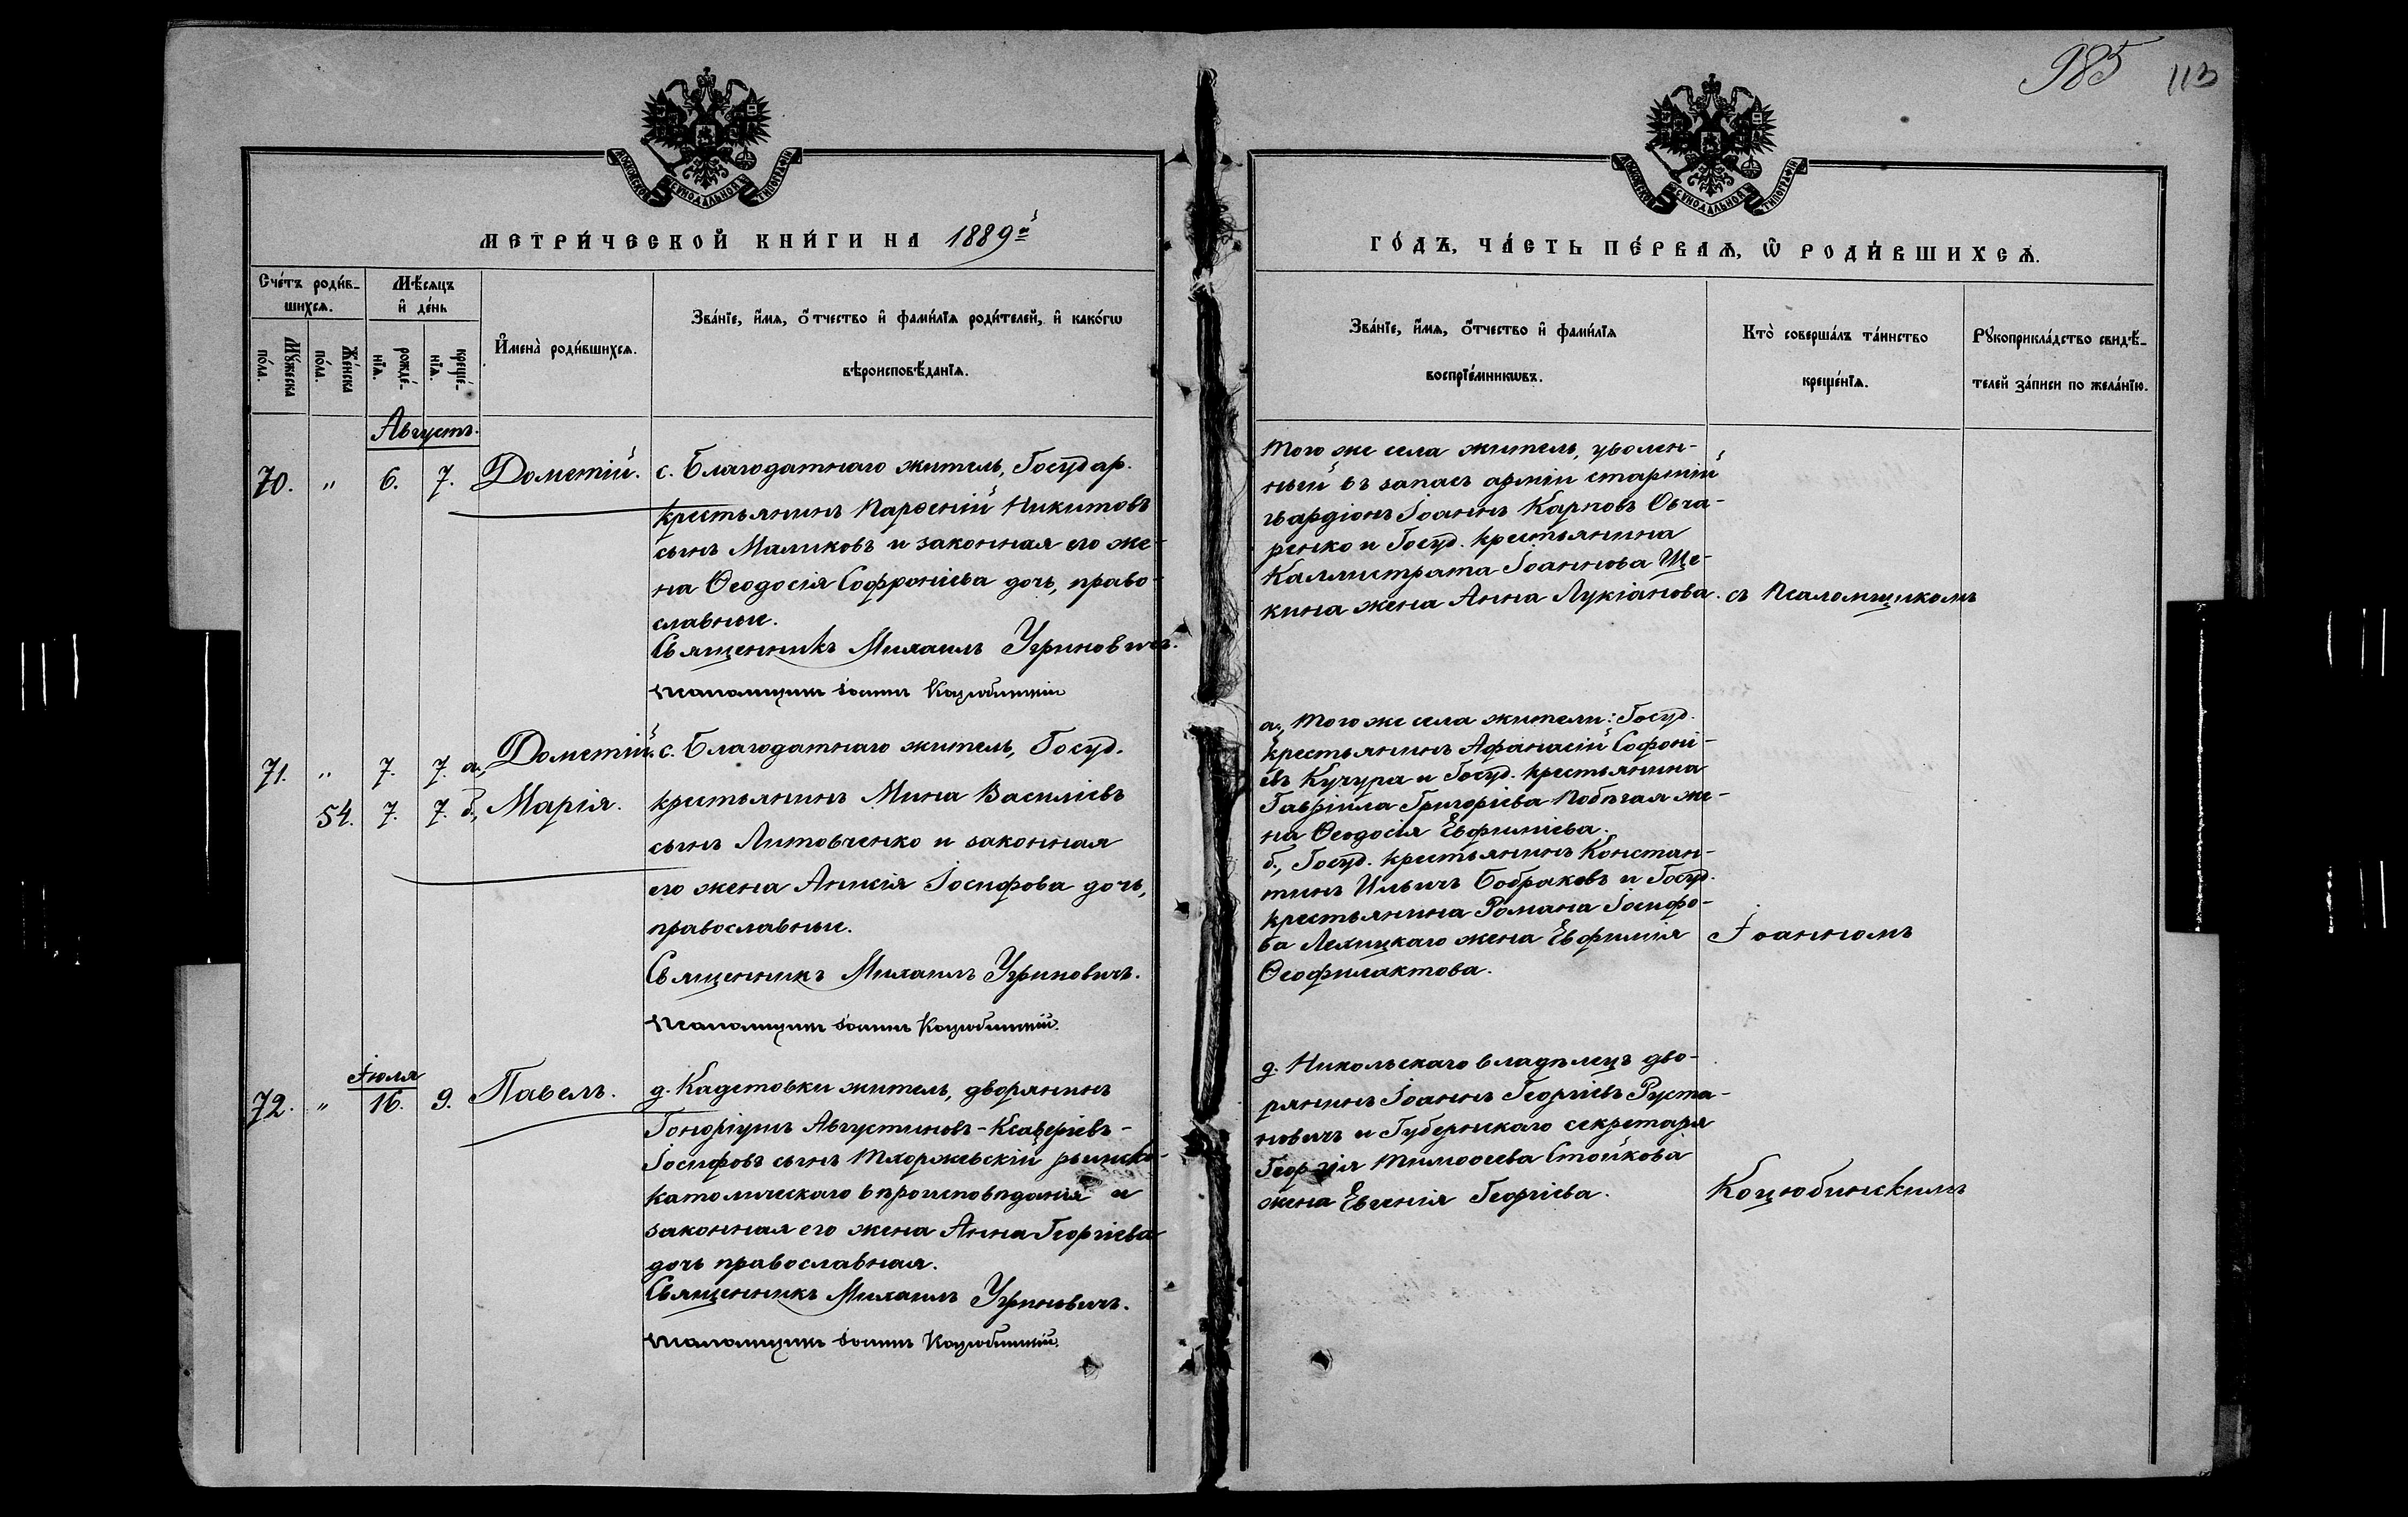 985 113
МОСКОВСКОЙ СѴНОДАЛЬНОЙ ТИПОГРАФІИ
МОСКОВСКОЙ СѴНОДАЛЬНОЙ ТИПОГРАФІИ
МЕТРИ́ЧЕСКОЙ КНИ́ГИ НА 1889й
ГО́ДЪ, ЧА́СТЬ ПЕ́РВАѦ, Ѡ РОДИ́ВШИХСѦ.
Сче́тъ роди́в-
шихсѧ.
Мѣ́сѧцъ
и де́нь
Мꙋ́жеска
по́ла.
Же́нска
по́ла.
рожде́-
нїѧ.
креще́-
нїѧ.
Имена̀ роди́вшихсѧ.
Зва́нїе, и́мѧ, о́тчество и фами́лїѧ роди́телей, и како́гѡ
вѣроисповѣ́данїѧ.
Зва́нїе, и́мѧ, о́тчество и фами́лїѧ
воспрїе́мникѡвъ.
Кто̀ соверша́лъ та́инство
креще́нїѧ.
Рꙋкоприкла́дство свидѣ́-
телей за́писи по жела́нїю.
Августъ.
70. " 6. 7. Дометій.
с. Благодатнаго житель, Государ.
крестьянинъ Парѳеній Никитовъ
сынъ Маликовъ и законная его же-
на Ѳеодосія Софроніева дочь, право-
славные.
Священникъ Михаилъ Угриновичъ.
Псаломщикъ Іоаннъ Коцюбинскій
того же села житель, уволен-
ный въ запасъ арміи старшій
гвардіонъ Іоаннъ Карповъ Овча-
ренко и Госуд. крестьянина
Каллистрата Іоаннова Ще-
кина жена Анна Лукіанова.
съ Псаломщикомъ
71. " 7. 7. а., Дометій.
54. 7. 7. б., Марія.
с. Благодатнаго житель, Госуд.
крестьянинъ Мина Василіевъ
сынъ Литовченко и законная
его жена Анисія Іосифова дочь,
православные.
Священникъ Михаилъ Угриновичъ.
Псаломщикъ Іоаннъ Коцюбинскій.
а., того же села жители: Госуд.
крестьянинъ Афанасій Софоні-
евъ Кучура и Госуд. крестьянина
Гавріила Григоріева Побѣгая же-
на Ѳеодосія Евфиміева.
б., Госуд. крестьянинъ Констан-
тинъ Ильичъ Бобраковъ и Госуд.
крестьянина Романа Іосифо-
ва Лехицкаго жена Евфимія
Ѳеофилактова.
Іоанномъ
Іюля
72. " 16. 9. Павелъ.
д. Кадетовки житель, дворянинъ
Гоноріушъ Августиновъ-Ксаверіевъ-
Іосифовъ сынъ Тхоржевскій римско-
католическаго вѣроисповѣданія и
законная его жена Анна Георгіева
дочь православная.
Священникъ Михаилъ Угриновичъ.
Псаломщикъ Іоаннъ Коцюбинскій.
д. Никольскаго владѣлецъ дво-
рянинъ Іоаннъ Георгіевъ Руста-
новичъ и Губернскаго секретаря
Георгія Тимоѳеева Стойкова
жена Евгенія Георгіева.
Коцюбинскимъ